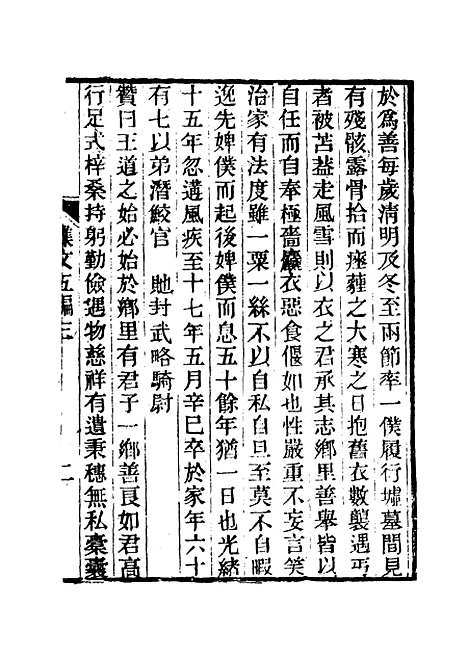 於爲善每歲淸明及冬至兩節率一僕履行墟墓間見
有殘骸露骨拾而瘞薶之大寒之日抱舊衣數襲遇丐
者被苫蓋走風雪則以衣之君承其志鄕里善舉皆以
自任而自奉極嗇麤衣惡食偃如也性嚴重不妄言笑
治家有法度雖一粟一絲不以自私自旦至莫不自暇
逸先婢僕而起後婢僕而息五十餘年猶一日也光緖
十五年忽遘風疾至十七年五月辛巳卒於家年六十
有七以弟潛鮫官 貤封武略騎尉
贊曰王道之始必始於鄕里有君子一鄕善良如君高
行足式梓桑持躬勤儉遇物慈祥有遺秉穗無私橐囊
襍文五編三 二